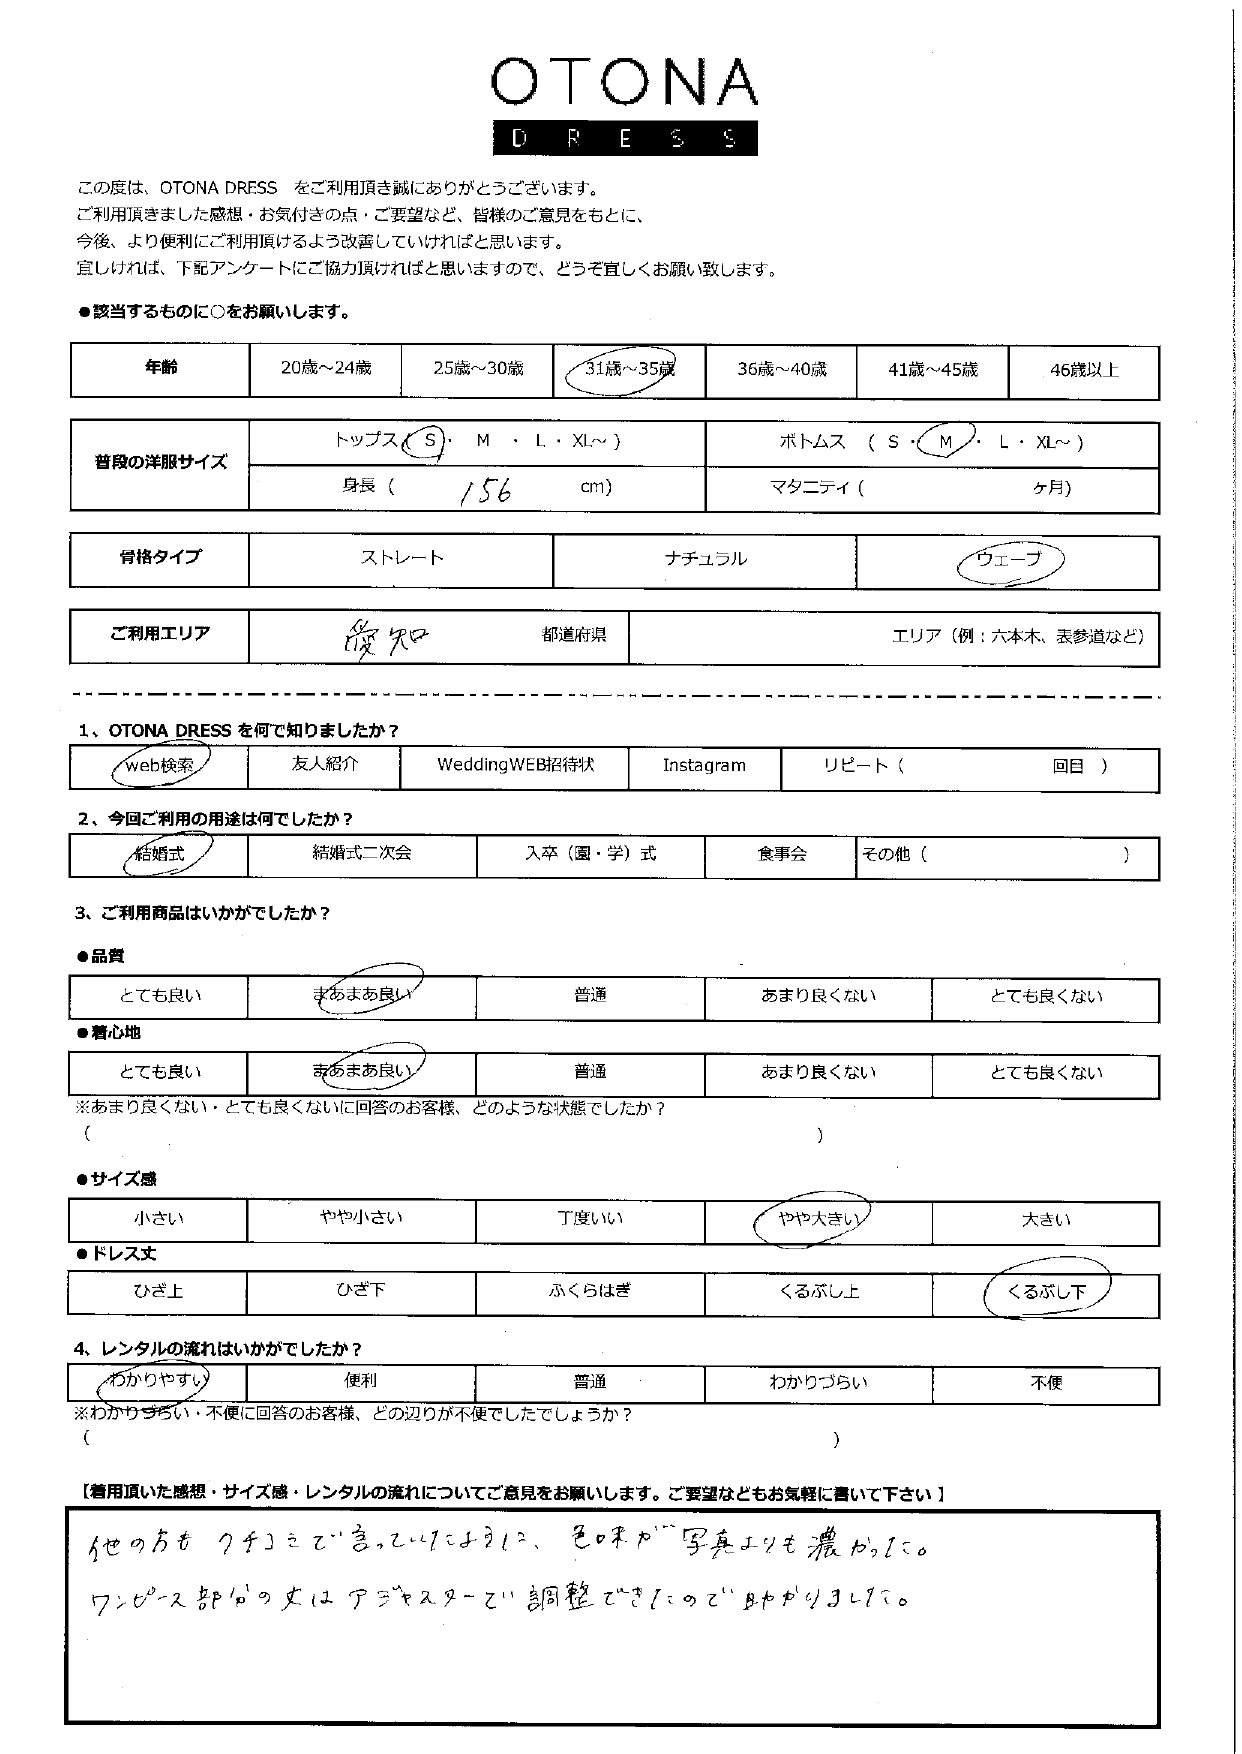 OTONA
DRESS
この度は、OTONA DRESS をご利用頂き誠にありがとうございます。
ご利用頂きました感想・お気付きの点・ご要望など、皆様のご意見をもとに、
今後、より便利にご利用頂けるよう改善していければと思います。
宜しければ、下記アンケートにご協力頂ければと思いますので、どうぞ宜しくお願い致します。
●該当するものに○をお願いします。
年齢 20歳～24歳 25歳～30歳 31歳～35歳 36歳～40歳 41歳～45歳 46歳以上
普段の洋服サイズ トップス( S ・ M ・ L ・ XL～ ) ボトムス ( S ・ M ・ L ・ XL～ )
身長 ( 156 cm) マタニティ ( ヶ月)
骨格タイプ ストレート ナチュラル ウェーブ
ご利用エリア 愛知 都道府県 エリア（例：六本木、表参道など）
1、OTONA DRESS を何で知りましたか？
web検索 友人紹介 WeddingWEB招待状 Instagram リピート ( 回目 )
2、今回ご利用の用途は何でしたか？
結婚式 結婚式二次会 入卒（園・学）式 食事会 その他 ( )
3、ご利用商品はいかがでしたか？
●品質
とても良い まあまあ良い 普通 あまり良くない とても良くない
●着心地
とても良い まあまあ良い 普通 あまり良くない とても良くない
※あまり良くない・とても良くないに回答のお客様、どのような状態でしたか？
( )
●サイズ感
小さい やや小さい 丁度いい やや大きい 大きい
●ドレス丈
ひざ上 ひざ下 ふくらはぎ くるぶし上 くるぶし下
4、レンタルの流れはいかがでしたか？
わかりやすい 便利 普通 わかりづらい 不便
※わかりづらい・不便に回答のお客様、どの辺りが不便でしたでしょうか？
( )
【着用頂いた感想・サイズ感・レンタルの流れについてご意見をお願いします。ご要望などもお気軽に書いて下さい】
他の方も クチコミで言っていたように、色味が写真よりも濃かった。
ワンピース部分の丈はアジャスターで調整できたので助かりました。